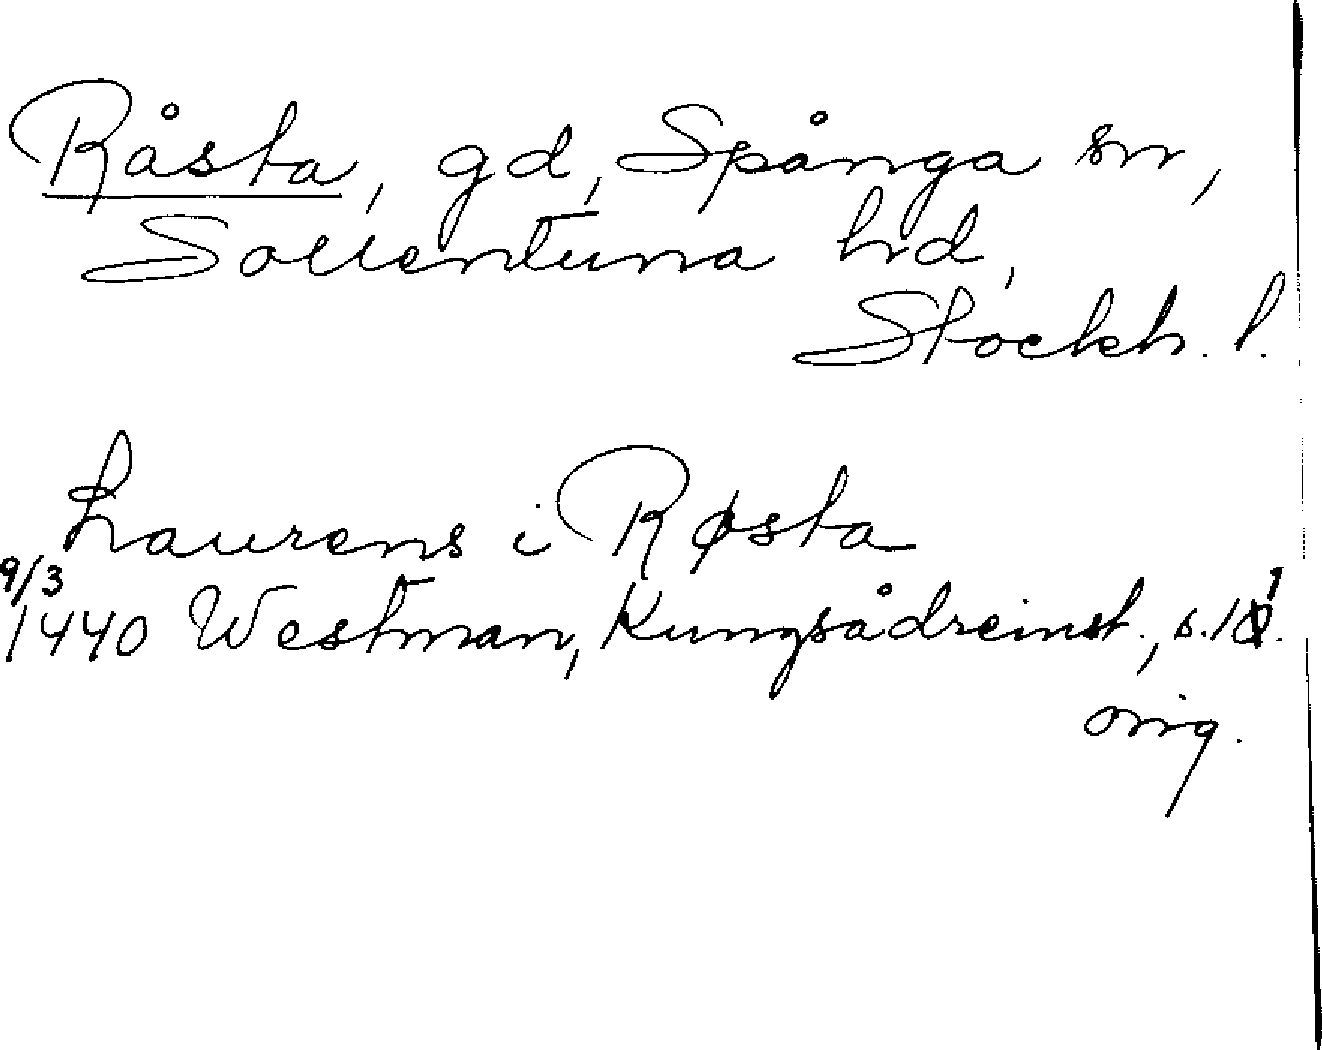 Råsta, gd, Spånga sn,
Sollentuna hd,
Stockh. l.
Laurens i Røsta
9/3
1440 Westman, Kungsådreinst., s.
orig.